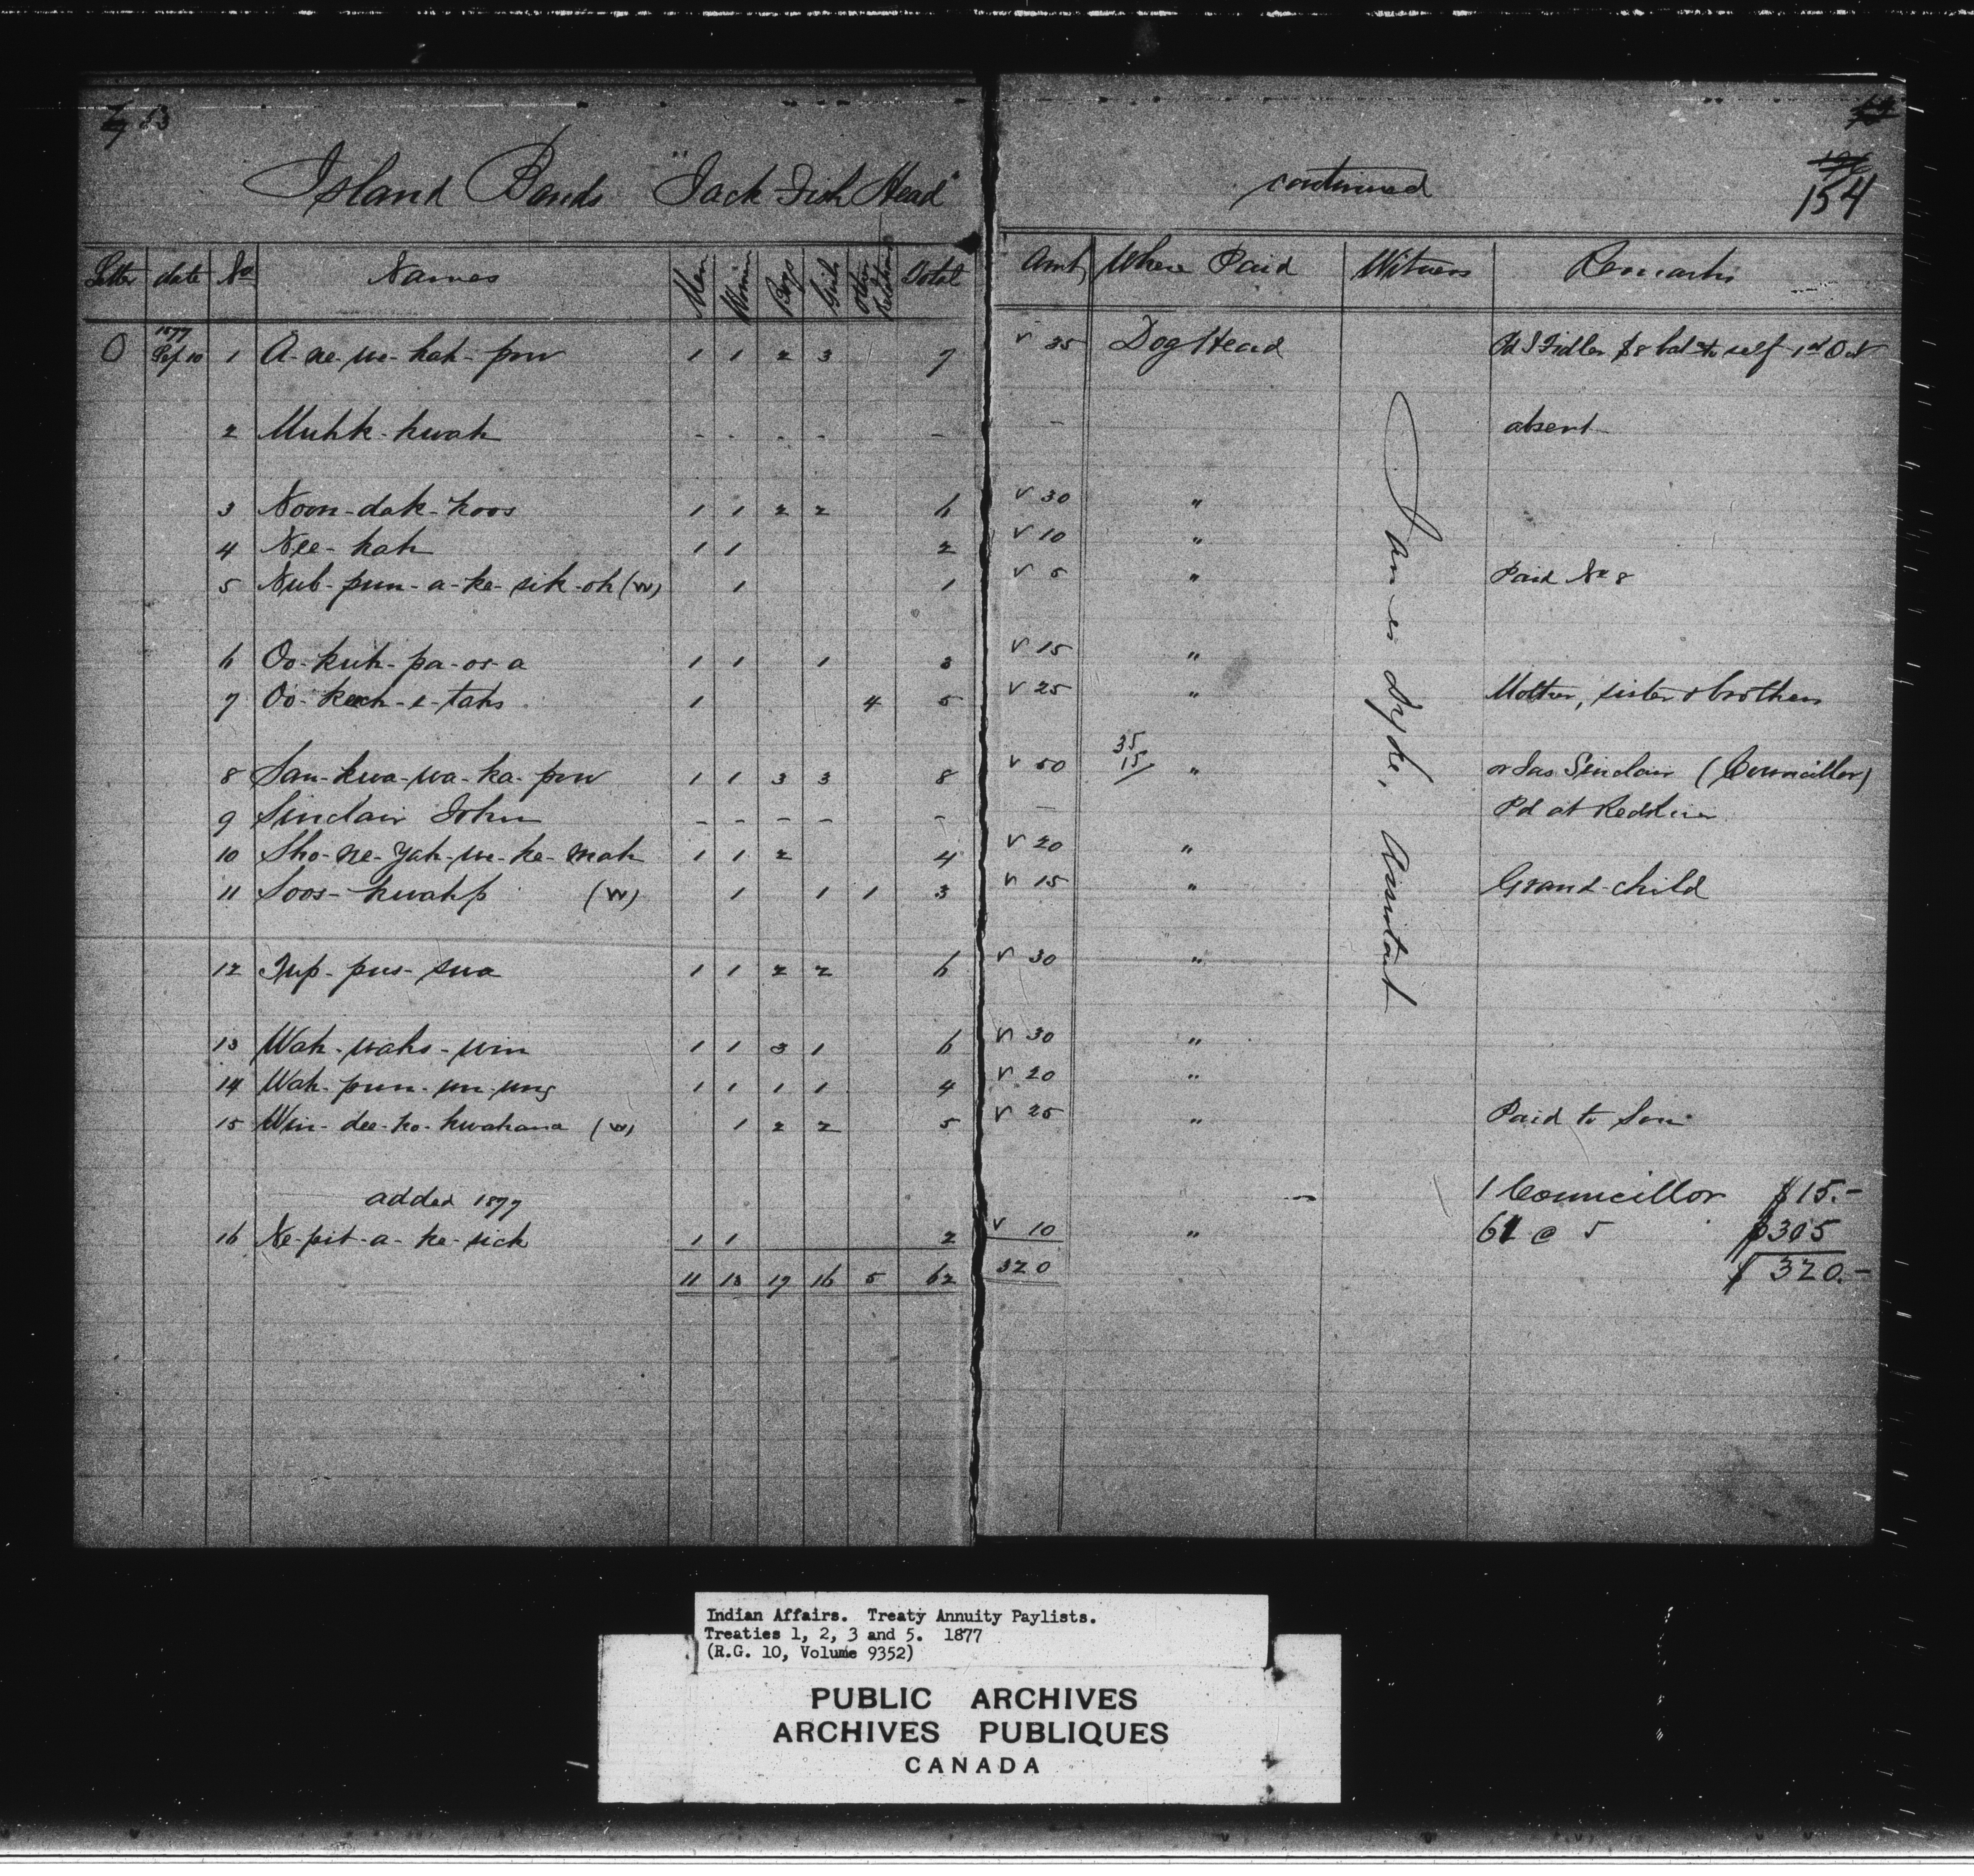 13
Island Bands "Jack Fish Head" continued
154
Letter date No Names Men Women Boys Girls Other Relations Total Amt Where Paid Witness Remarks
O 1877 Sep 10 1 A-ne-we-kah-pow 1 1 2 3 7 v 35 Dog Head Pd J Fidler $8 balce to self 1st Oct
2 Muhk-kwah - - - - - - absent
3 Noon-dak-koos 1 1 2 2 6 v 30 "
4 Nee-kah 1 1 2 v 10 "
5 Nub-pun-a-ke-sik-oh (W) 1 1 v 5 " Paid No 8
6 Oo-kuh-pa-os-a 1 1 1 3 v 15 "
7 Oo-kech-e-tahs 1 4 5 v 25 " Mother, sister & brothers
8 Sau-kwa-wa-ka-pow 1 1 3 3 8 v 50 35 15/ " or Jas Sinclair (Councillor)
9 Sinclair John - - - - - - Pd at Red River
10 Sho-ne-yah-we-ke-mah 1 1 2 4 v 20 "
11 Soos-kwahp (W) 1 1 1 3 v 15 " Grand-child
12 Tup-pus-sua 1 1 2 2 6 v 30 "
13 Wah-wahs-win 1 1 3 1 6 v 30 "
14 Wah-pun-un-ung 1 1 1 1 4 v 20 "
15 Win-dee-ko-kwahana (W) 1 2 2 5 v 25 " Paid to Son
James Dyke, Assistant
added 1877 1 Councillor $15.-
16 Ne-pit-a-ke-sick 1 1 2 v 10 " 61 @ 5 $305
11 13 17 16 5 62 320 $320.-
Indian Affairs. Treaty Annuity Paylists.
Treaties 1, 2, 3 and 5. 1877
(R.G. 10, Volume 9352)
PUBLIC ARCHIVES
ARCHIVES PUBLIQUES
CANADA